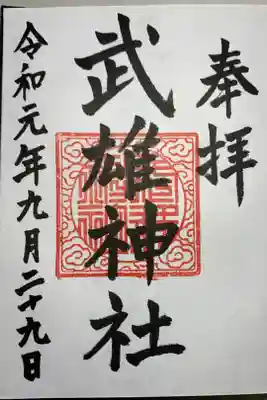 奉拝
武雄神社
令和元年九月二十九日